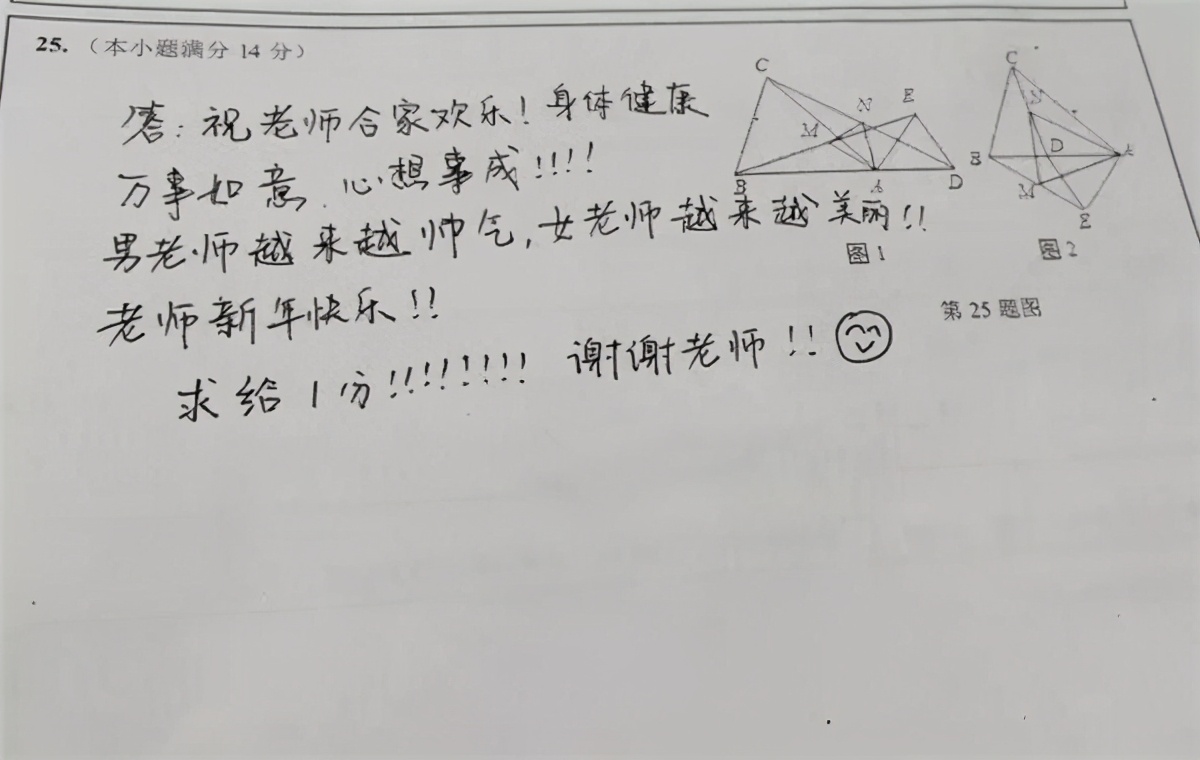 25. (本小题满分 14 分)
答：祝老师合家欢乐！身体健康
万事如意、心想事成!!!!
男老师越来越帅气,女老师越来越美丽!!
老师新年快乐!!
求给1分!!!!!!!! 谢谢老师!!
C
N
E
M
B
A
D
图1
C
N
B
D
A
M
E
图2
第 25 题图